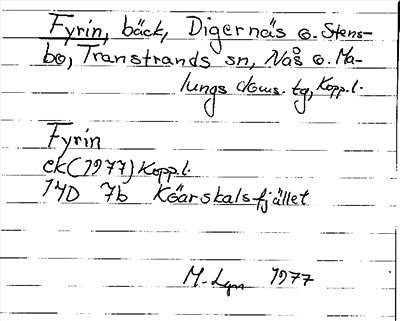 Fyrin, bäck, Digernäs o. Stens-
bo, Transtrands sn, Nås o. Ma-
lungs doms. tg, Kopp.l.
Fyrin
ek (1977) Kopp.l.
14D 7b Köarskalsfjället
M. Lgn 1977